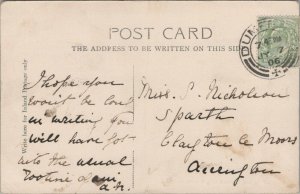 POST CARD
THE ADDRESS TO BE WRITTEN ON THIS SIDE
Write here for Inland Postage only
I hope you
won't be long
in writing you
will have got
into the usual
routine
Miss. S. Nicholson
Sparth
Clayton le Moors
Accrington
DUM
7
06